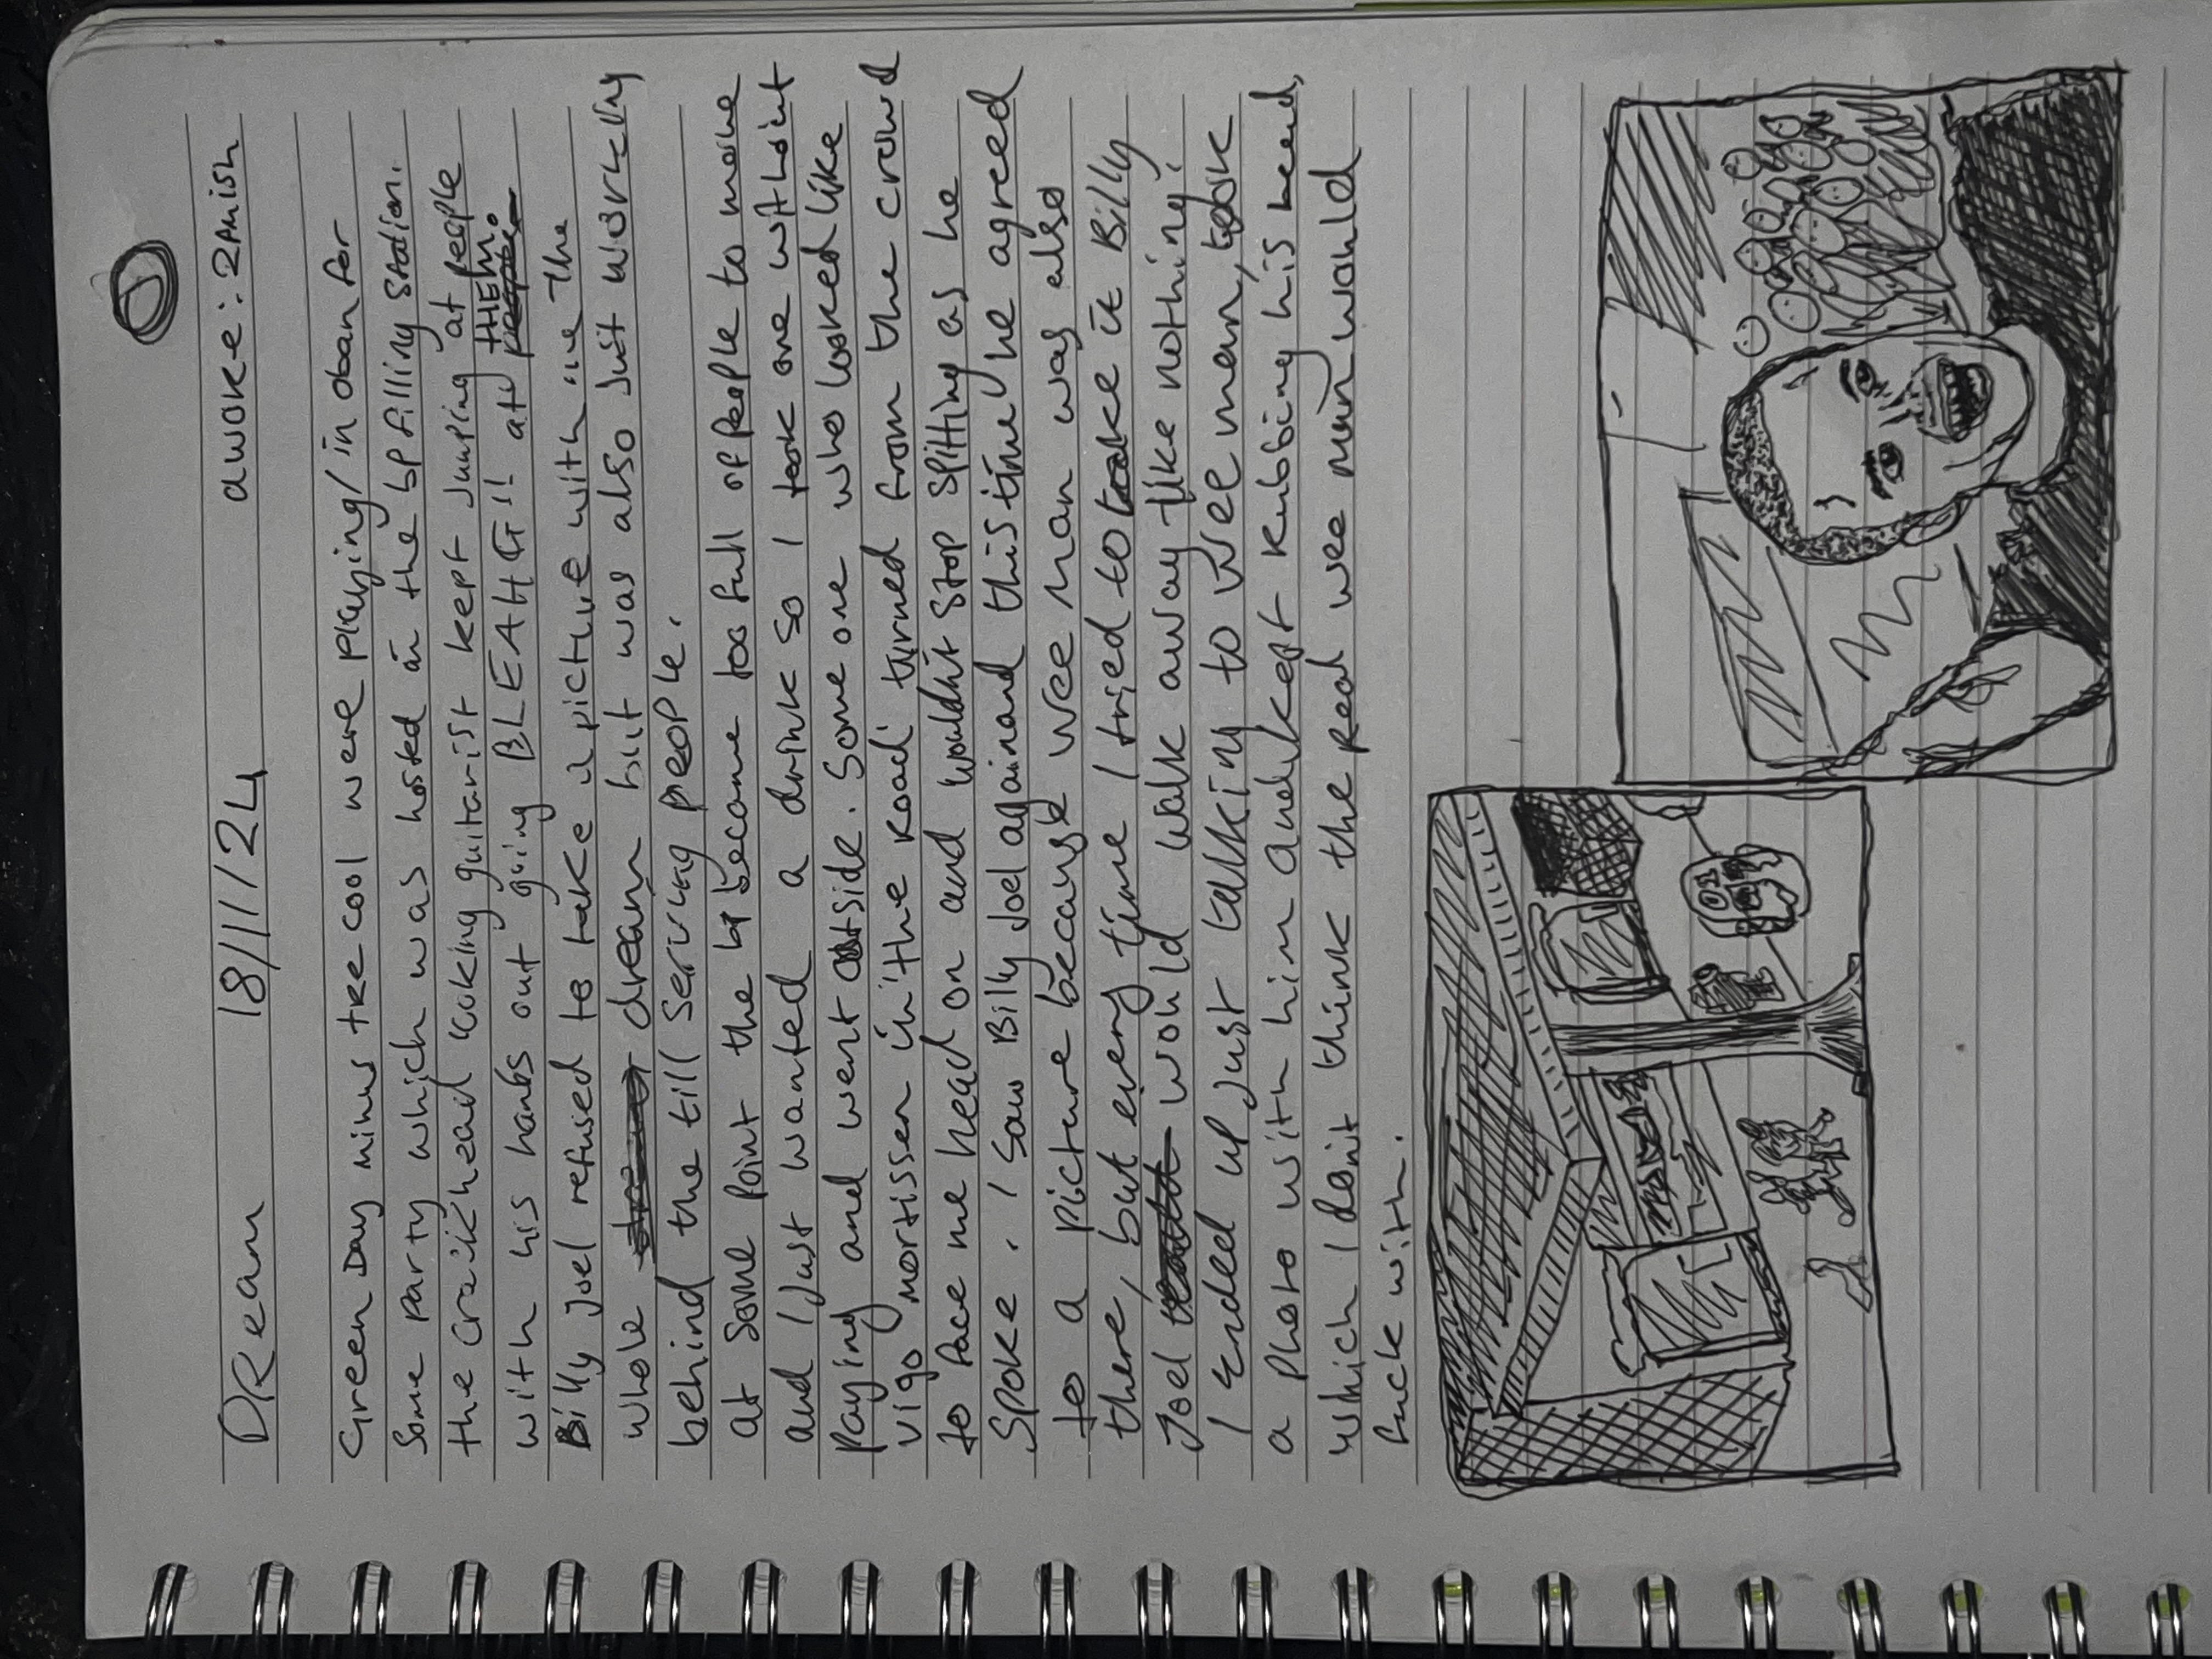 DReam 18/11/24 awoke: 2pmish
Green Day minus tre cool were playing/in oban for
Some Party which was hosted in the bp filling stadion.
the crackhead looking guitarist kept Jumping at people
with his hands out going BLEAHG!! at THEM.
Billy Joel refused to take a picture with me The
whole dream but was also Just working
behind the till serving people.
at some point the bp become too full of people to move
and I Just wanted a drink so I took one without
Paying and went outside. Some one who looked like
vigo mortissen in 'the road' turned from the crowd
to face me head on and wouldn't stop spitting as he
spoke. I saw Billy Joel again and this time he agreed
to a picture because wee man was also
there, but every time I tried to take it Billy
Joel would walk away like nothing.
I ended up Just talking to wee man, took
a photo with him and kept Rubbing his head,
which I don't think the real wee man would
fuck with.